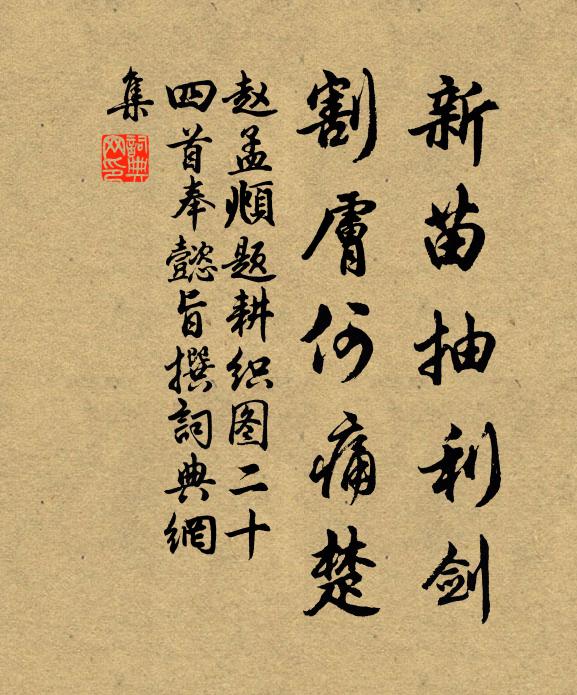 新苗抽利剑
割膚何痛楚
赵孟頫题耕织图二十
四首奉懿旨撰詞典網
集
詞典
网印